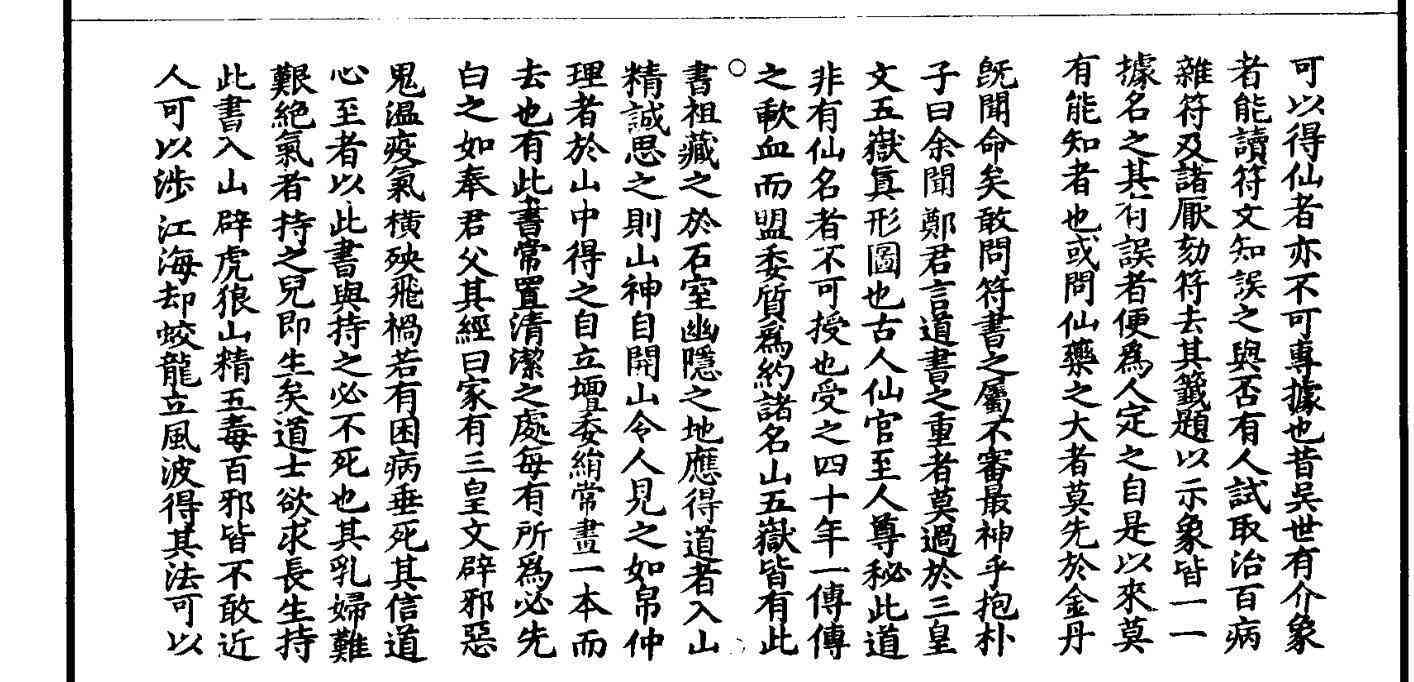 可以得仙者亦不可專據也昔吳世有介象
者能讀符文知誤之與否有人試取治百病
雜符及諸厭劾符去其籤題以示象皆一一
據名之其有誤者便為人定之自是以來莫
有能知者也或問仙藥之大者莫先於金丹
既聞命矣敢問符書之屬不審最神乎抱朴
子曰余聞鄭君言道書之重者莫過於三皇
文五嶽真形圖也古人仙官至人尊秘此道
非有仙名者不可授也受之四十年一傳傳
之歃血而盟委質為約諸名山五嶽皆有此
書祖藏之於石室幽隱之地應得道者入山
精誠思之則山神自開山令人見之如帛仲
理者於山中得之自立壇委絹常畫一本而
去也有此書常置清潔之處每有所為必先
白之如奉君父其經曰家有三皇文辟邪惡
鬼溫疫氣橫殃飛禍若有困病垂死其信道
心至者以此書與持之必不死也其乳婦難
艱絕氣者持之兒即生矣道士欲求長生持
此書入山辟虎狼山精五毒百邪皆不敢近
人可以涉江海却蛟龍立風波得其法可以